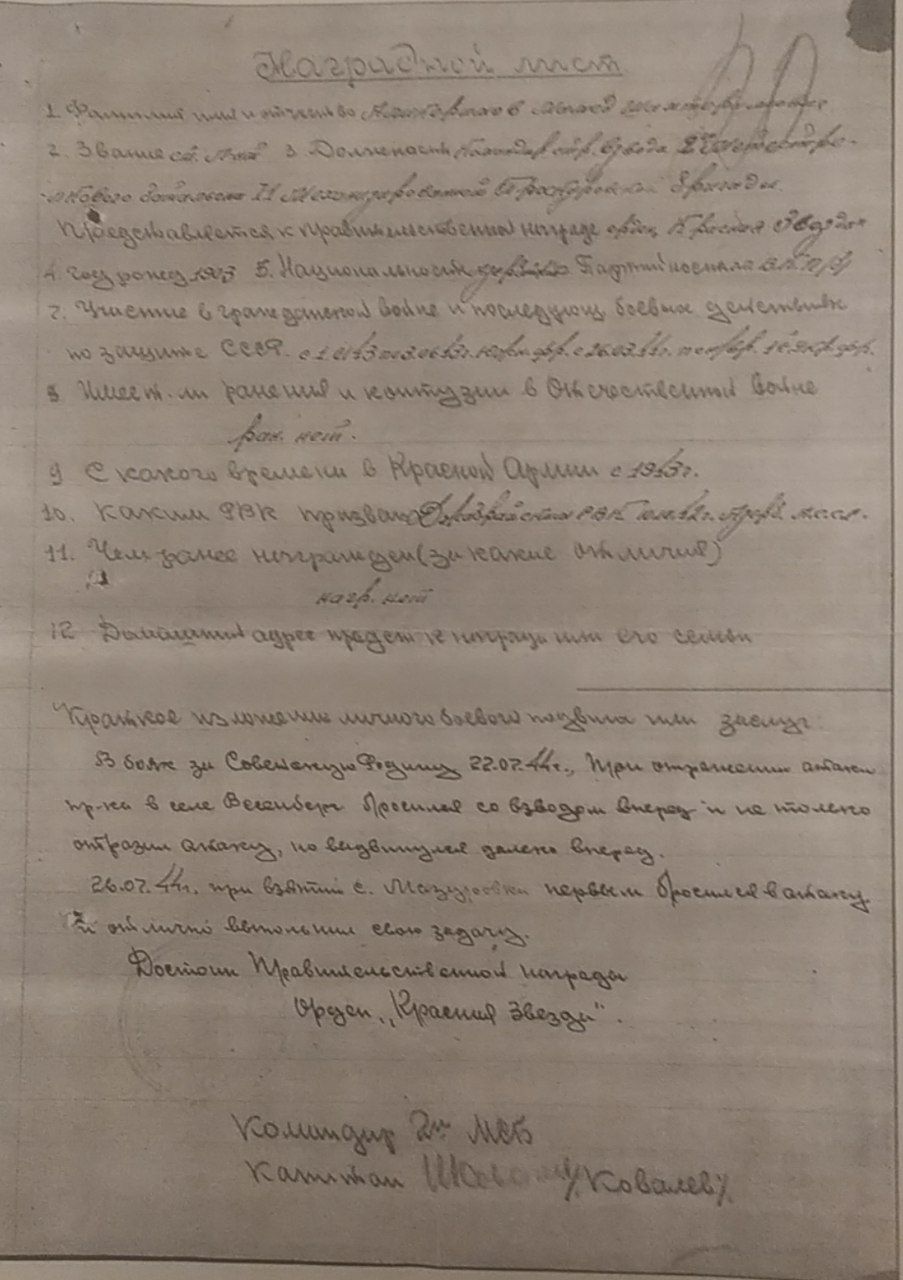 Наградной лист
1. Фамилия имя и отчество
2. Звание ст. л-нт 3. Должность Командир стр. взвода 2го мотостре-
лкового батальона 11 Механизированной Проскуровской бригады
Представляется к правительственной награде орден Красная Звезда
4. Год рожд 1913 5. Национальность Партийность
7. Участие в гражданской войне и последующ. боевых действиях
по защите СССР. 1 Укр. фр.
8 Имеет ли ранения и контузии в Отечественной войне
ран. нет.
9 С какого времени в Красной Армии с 1943 г.
10. Каким РВК призван РВК
11. Чем ранее награжден (за какие отличия)
нагр. нет
12 Домашний адрес предст к награде или его семьи
Краткое изложение личного боевого подвига или заслуг:
В боях за Советскую Родину 22.07.44г., при отражении атаки
пр-ка в селе бросился со взводом вперед и не только
отразил атаку, но выдвинулся далеко вперед.
26.07.44г. при взятии с. Мазуровки первым бросился в атаку
и отлично выполнил свою задачу.
Достоин Правительственной награды
Орден "Красная Звезда".
Командир 2го МСБ
Капитан /Ковалев/